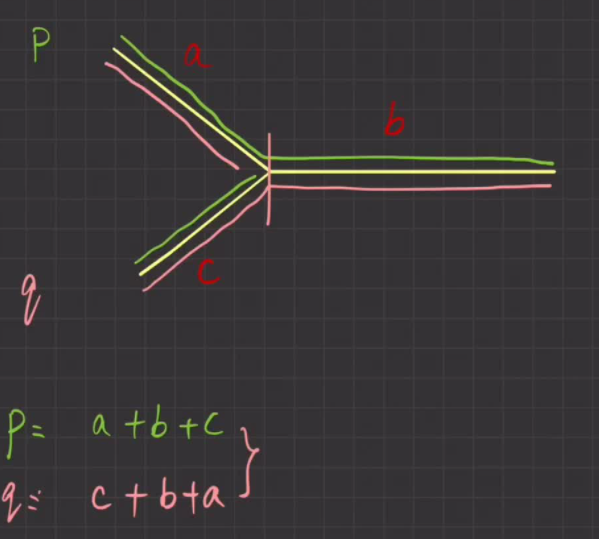 P
a
b
c
q
p= a+b+c
q= c+b+a